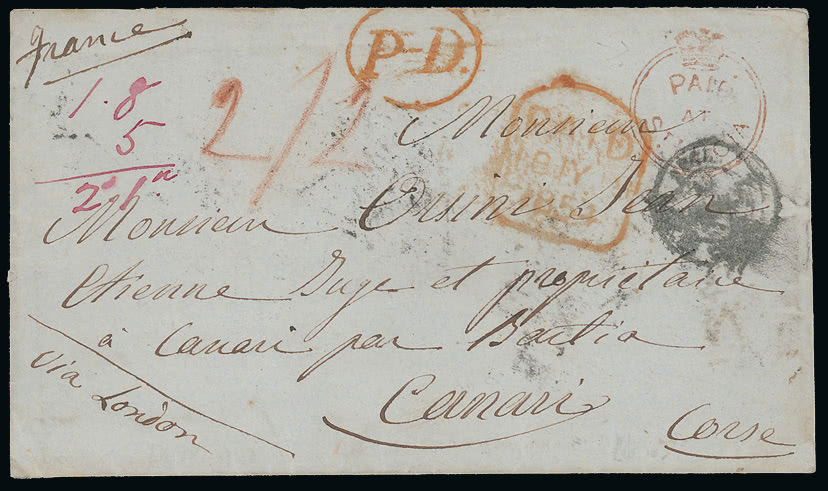 France
P-D.
PAID
AT
1. 8
5
2. 1
2/2
Monsieur
PAID
1852
Monsieur Orsini Jean
Etienne Juge et propriétaire
à Canari par Bastia
Canari
Corse
via London